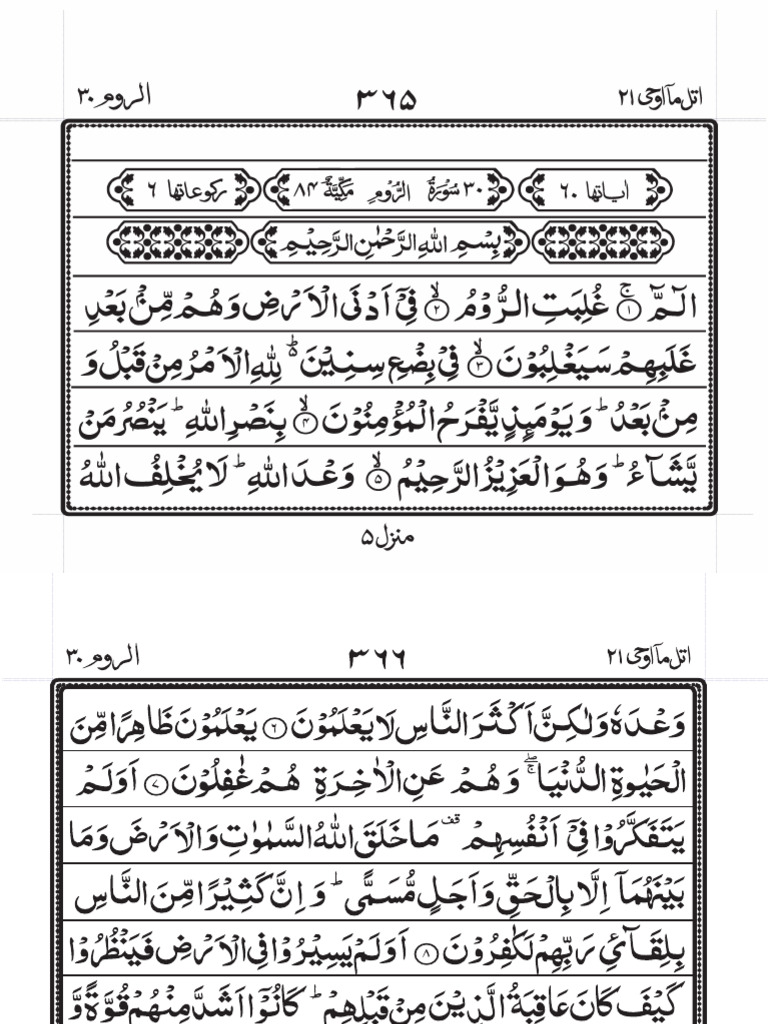 اتل ماۤ اوحی ۲۱ ۳۶۵ الروم ۳۰
اٰیاتها ۶۰ ۳۰ سُوْرَةُ الرُّوْمِ مَكِّیَّةٌ ۸۴ رکوعاتها ۶
بِسْمِ اللهِ الرَّحْمٰنِ الرَّحِیْمِ
الٓمّٓ ۚ﴿۱﴾ غُلِبَتِ الرُّوْمُ ۙ﴿۲﴾ فِیْۤ اَدْنَی الْاَرْضِ وَهُمْ مِّنْۢ بَعْدِ
غَلَبِهِمْ سَیَغْلِبُوْنَ ۙ﴿۳﴾ فِیْ بِضْعِ سِنِیْنَ ؕ۬ لِلّٰهِ الْاَمْرُ مِنْ قَبْلُ وَ
مِنْۢ بَعْدُ ؕ وَیَوْمَىِٕذٍ یَّفْرَحُ الْمُؤْمِنُوْنَ ۙ﴿۴﴾ بِنَصْرِ اللهِ ؕ یَنْصُرُ مَنْ
یَّشَآءُ ؕ وَهُوَ الْعَزِیْزُ الرَّحِیْمُ ۙ﴿۵﴾ وَعْدَ اللهِ ؕ لَا یُخْلِفُ اللهُ
منزل ۵
اتل ماۤ اوحی ۲۱ ۳۶۶ الروم ۳۰
وَعْدَهٗ وَلٰكِنَّ اَكْثَرَ النَّاسِ لَا یَعْلَمُوْنَ ﴿۶﴾ یَعْلَمُوْنَ ظَاهِرًا مِّنَ
الْحَیٰوةِ الدُّنْیَا ۖۚ وَهُمْ عَنِ الْاٰخِرَةِ هُمْ غٰفِلُوْنَ ﴿۷﴾ اَوَلَمْ
یَتَفَكَّرُوْا فِیْۤ اَنْفُسِهِمْ ۫ مَا خَلَقَ اللهُ السَّمٰوٰتِ وَالْاَرْضَ وَمَا
بَیْنَهُمَاۤ اِلَّا بِالْحَقِّ وَاَجَلٍ مُّسَمًّی ؕ وَاِنَّ كَثِیْرًا مِّنَ النَّاسِ
بِلِقَآئِ رَبِّهِمْ لَكٰفِرُوْنَ ﴿۸﴾ اَوَلَمْ یَسِیْرُوْا فِی الْاَرْضِ فَیَنْظُرُوْا
كَیْفَ كَانَ عَاقِبَةُ الَّذِیْنَ مِنْ قَبْلِهِمْ ؕ كَانُوْۤا اَشَدَّ مِنْهُمْ قُوَّةً وَّ